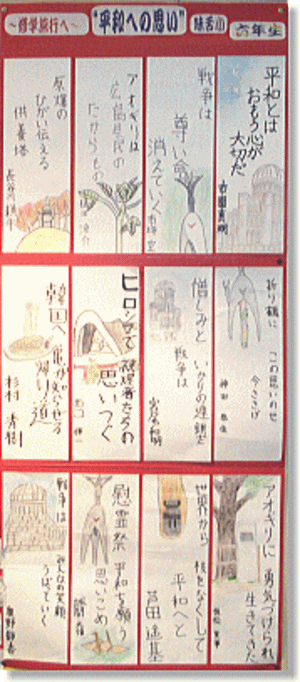 ～修学旅行へ～
"平和への思い"
味舌小
六年生
平和とは
おもう心が
大切だ
戦争は
尊い命
消えていく
アオギリは
広島県民の
たからもの
原爆の
ひがい伝える
供養塔
折り鶴に
この思いのせ
今ささげ
神田
憎しみと
いかりの連鎖だ
戦争は
ヒロシマで
被爆者たちの
思いつぐ
韓国へ
亀が
帰り道
杉村
アオギリに
勇気づけられ
生きてきた
世界から
核をなくして
平和へと
芦田
慰霊祭
平和を願う
思いこめ
戦争は
みんなの笑顔
うばっていく
奥野